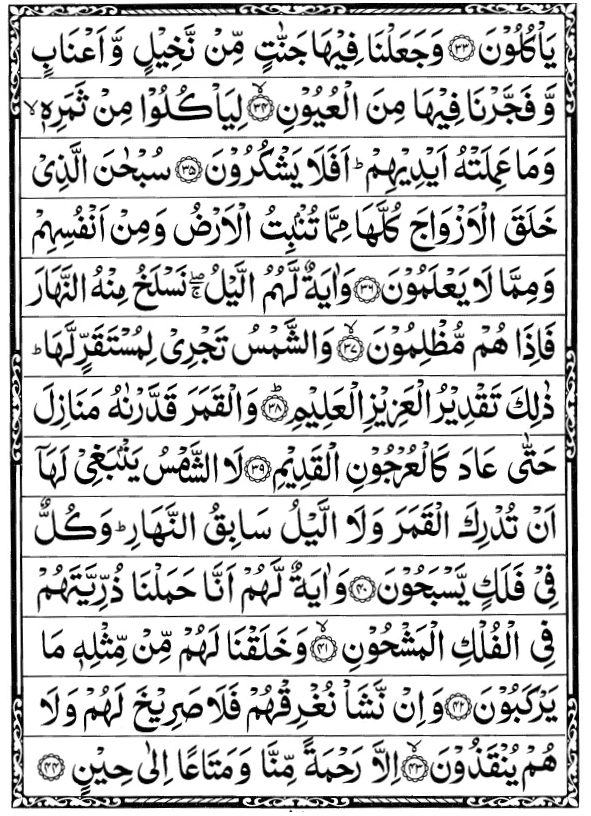 يَاۡكُلُوۡنَ ﴿۳۳﴾ وَجَعَلۡنَا فِيۡهَا جَنّٰتٍ مِّنۡ نَّخِيۡلٍ وَّاَعۡنَابٍ
وَّفَجَّرۡنَا فِيۡهَا مِنَ الۡعُيُوۡنِ ۙ﴿۳۴﴾ لِيَاۡكُلُوۡا مِنۡ ثَمَرِهٖ ۙ
وَمَا عَمِلَتۡهُ اَيۡدِيۡهِمۡ ؕ اَفَلَا يَشۡكُرُوۡنَ ﴿۳۵﴾ سُبۡحٰنَ الَّذِىۡ
خَلَقَ الۡاَزۡوَاجَ كُلَّهَا مِمَّا تُنۡۢبِتُ الۡاَرۡضُ وَمِنۡ اَنۡفُسِهِمۡ
وَمِمَّا لَا يَعۡلَمُوۡنَ ﴿۳۶﴾ وَاٰيَةٌ لَّهُمُ الَّيۡلُ ۖۚ نَسۡلَخُ مِنۡهُ النَّهَارَ
فَاِذَا هُمۡ مُّظۡلِمُوۡنَ ۙ﴿۳۷﴾ وَالشَّمۡسُ تَجۡرِىۡ لِمُسۡتَقَرٍّ لَّهَا ؕ
ذٰلِكَ تَقۡدِيۡرُ الۡعَزِيۡزِ الۡعَلِيۡمِ ؕ﴿۳۸﴾ وَالۡقَمَرَ قَدَّرۡنٰهُ مَنَازِلَ
حَتّٰى عَادَ كَالۡعُرۡجُوۡنِ الۡقَدِيۡمِ ﴿۳۹﴾ لَا الشَّمۡسُ يَنۡۢبَغِىۡ لَهَاۤ
اَنۡ تُدۡرِكَ الۡقَمَرَ وَلَا الَّيۡلُ سَابِقُ النَّهَارِ ؕ وَكُلٌّ
فِىۡ فَلَكٍ يَّسۡبَحُوۡنَ ﴿۴۰﴾ وَاٰيَةٌ لَّهُمۡ اَنَّا حَمَلۡنَا ذُرِّيَّتَهُمۡ
فِى الۡفُلۡكِ الۡمَشۡحُوۡنِ ۙ﴿۴۱﴾ وَخَلَقۡنَا لَهُمۡ مِّنۡ مِّثۡلِهٖ مَا
يَرۡكَبُوۡنَ ﴿۴۲﴾ وَاِنۡ نَّشَاۡ نُغۡرِقۡهُمۡ فَلَا صَرِيۡخَ لَهُمۡ وَلَا
هُمۡ يُنۡقَذُوۡنَ ۙ﴿۴۳﴾ اِلَّا رَحۡمَةً مِّنَّا وَمَتَاعًا اِلٰى حِيۡنٍ ﴿۴۴﴾